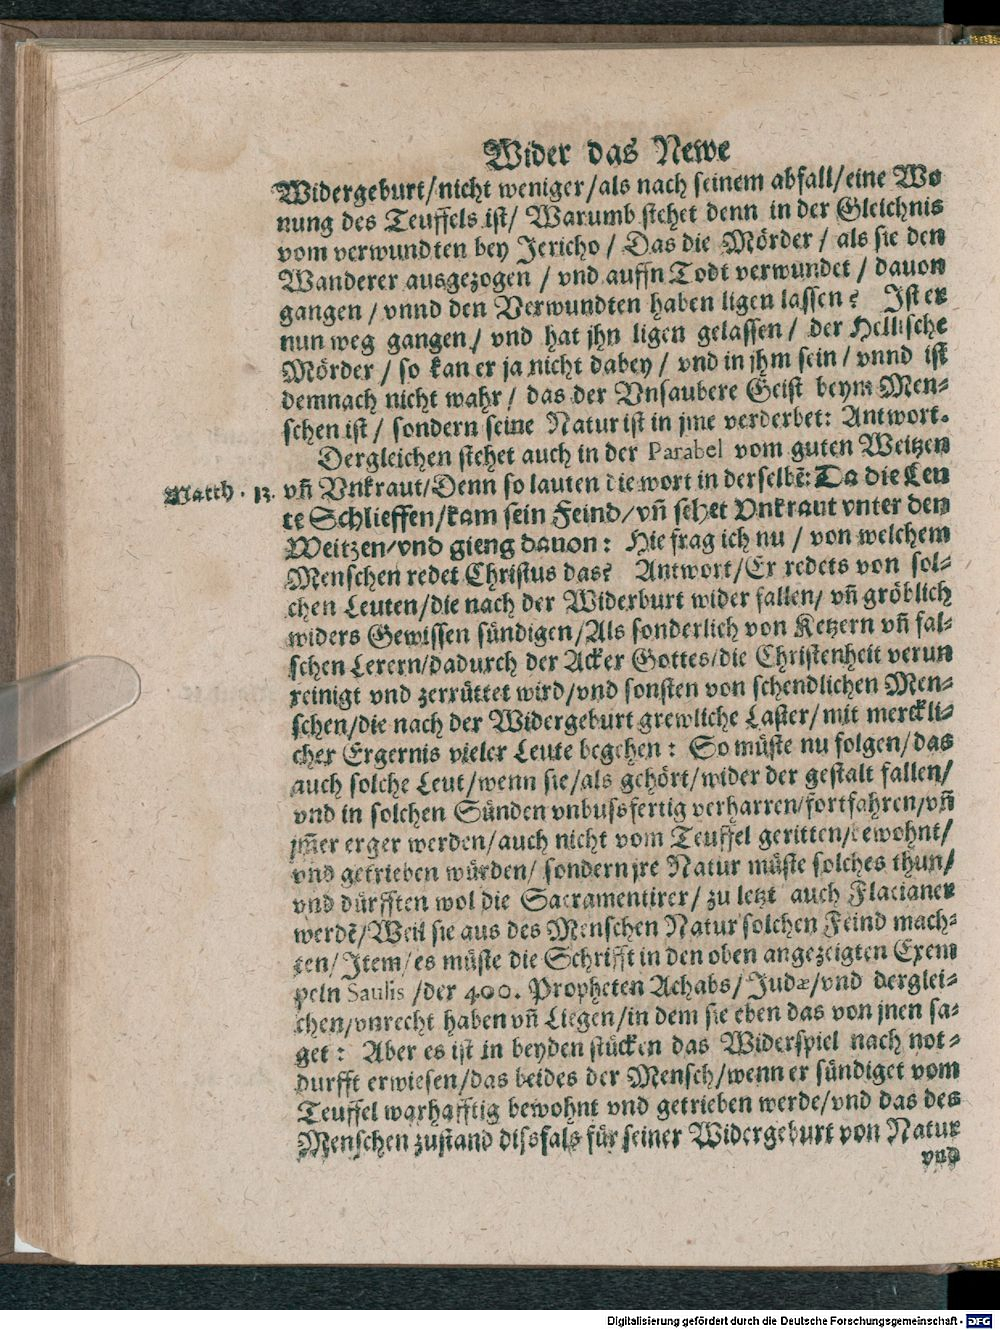 Wider das Newe
Widergeburt/nicht weniger/als nach seinem abfall/eine Wo
nung des Teuffels ist/ Warumb stehet denn in der Gleichnis
vom verwundten bey Jericho / Das die Mörder / als sie den
Wanderer ausgezogen / vnd auffn Todt verwundet / dauon
gangen / vnnd den Verwundten haben ligen lassen? Ist er
nun weg gangen / vnd hat jhn ligen gelassen / der Hellische
Mörder / so kan er ja nicht dabey / vnd in jhm sein / vnnd ist
demnach nicht wahr / das der Vnsaubere Geist beym Men-
schen ist / sondern seine Natur ist in jme verderbet: Antwort.
Dergleichen stehet auch in der Parabel vom guten Weitzen
Matth. 13. vñ Vnkraut/Denn so lauten die wort in derselbẽ: Da die Leu
te Schlieffen/kam sein Feind/vñ sehet Vnkraut vnter den
Weitzen/vnd gieng dauon: Hie frag ich nu / von welchem
Menschen redet Christus das? Antwort/Er redets von sol-
chen Leuten/die nach der Widerburt wider fallen/ vñ gröblich
widers Gewissen sündigen/Als sonderlich von Ketzern vñ fal-
schen Lerern/dadurch der Acker Gottes/die Christenheit verun
reinigt vnd zerrüttet wird/vnd sonsten von schendlichen Men-
schen/die nach der Widergeburt grewliche Laster/mit merckli-
cher Ergernis vieler Leute begehen: So müste nu folgen/das
auch solche Leut/wenn sie/als gehört/wider der gestalt fallen/
vnd in solchen Sünden vnbussfertig verharren/fortfahren/vñ
jm̃er erger werden/auch nicht vom Teuffel geritten/bewohnt/
vnd getrieben würden/ sondern jre Natur müste solches thun/
vnd dürfften wol die Sacramentirer/ zu letzt auch Flacianer
werdẽ/Weil sie aus des Menschen Natur solchen Feind mach-
ten/ Item/es müste die Schrifft in den oben angezeigten Exem
peln Saulis /der 400. Propheten Achabs/ Judæ/vnd derglei-
chen/vnrecht haben vñ Liegen/in dem sie eben das von jnen sa-
get: Aber es ist in beyden stücken das Widerspiel nach not-
durfft erwiesen/das beides der Mensch/wenn er sündiget vom
Teuffel warhafftig bewohnt vnd getrieben werde/vnd das des
Menschen zustand dissfals für seiner Widergeburt von Natur
vnd
Digitalisierung gefördert durch die Deutsche Forschungsgemeinschaft - DFG